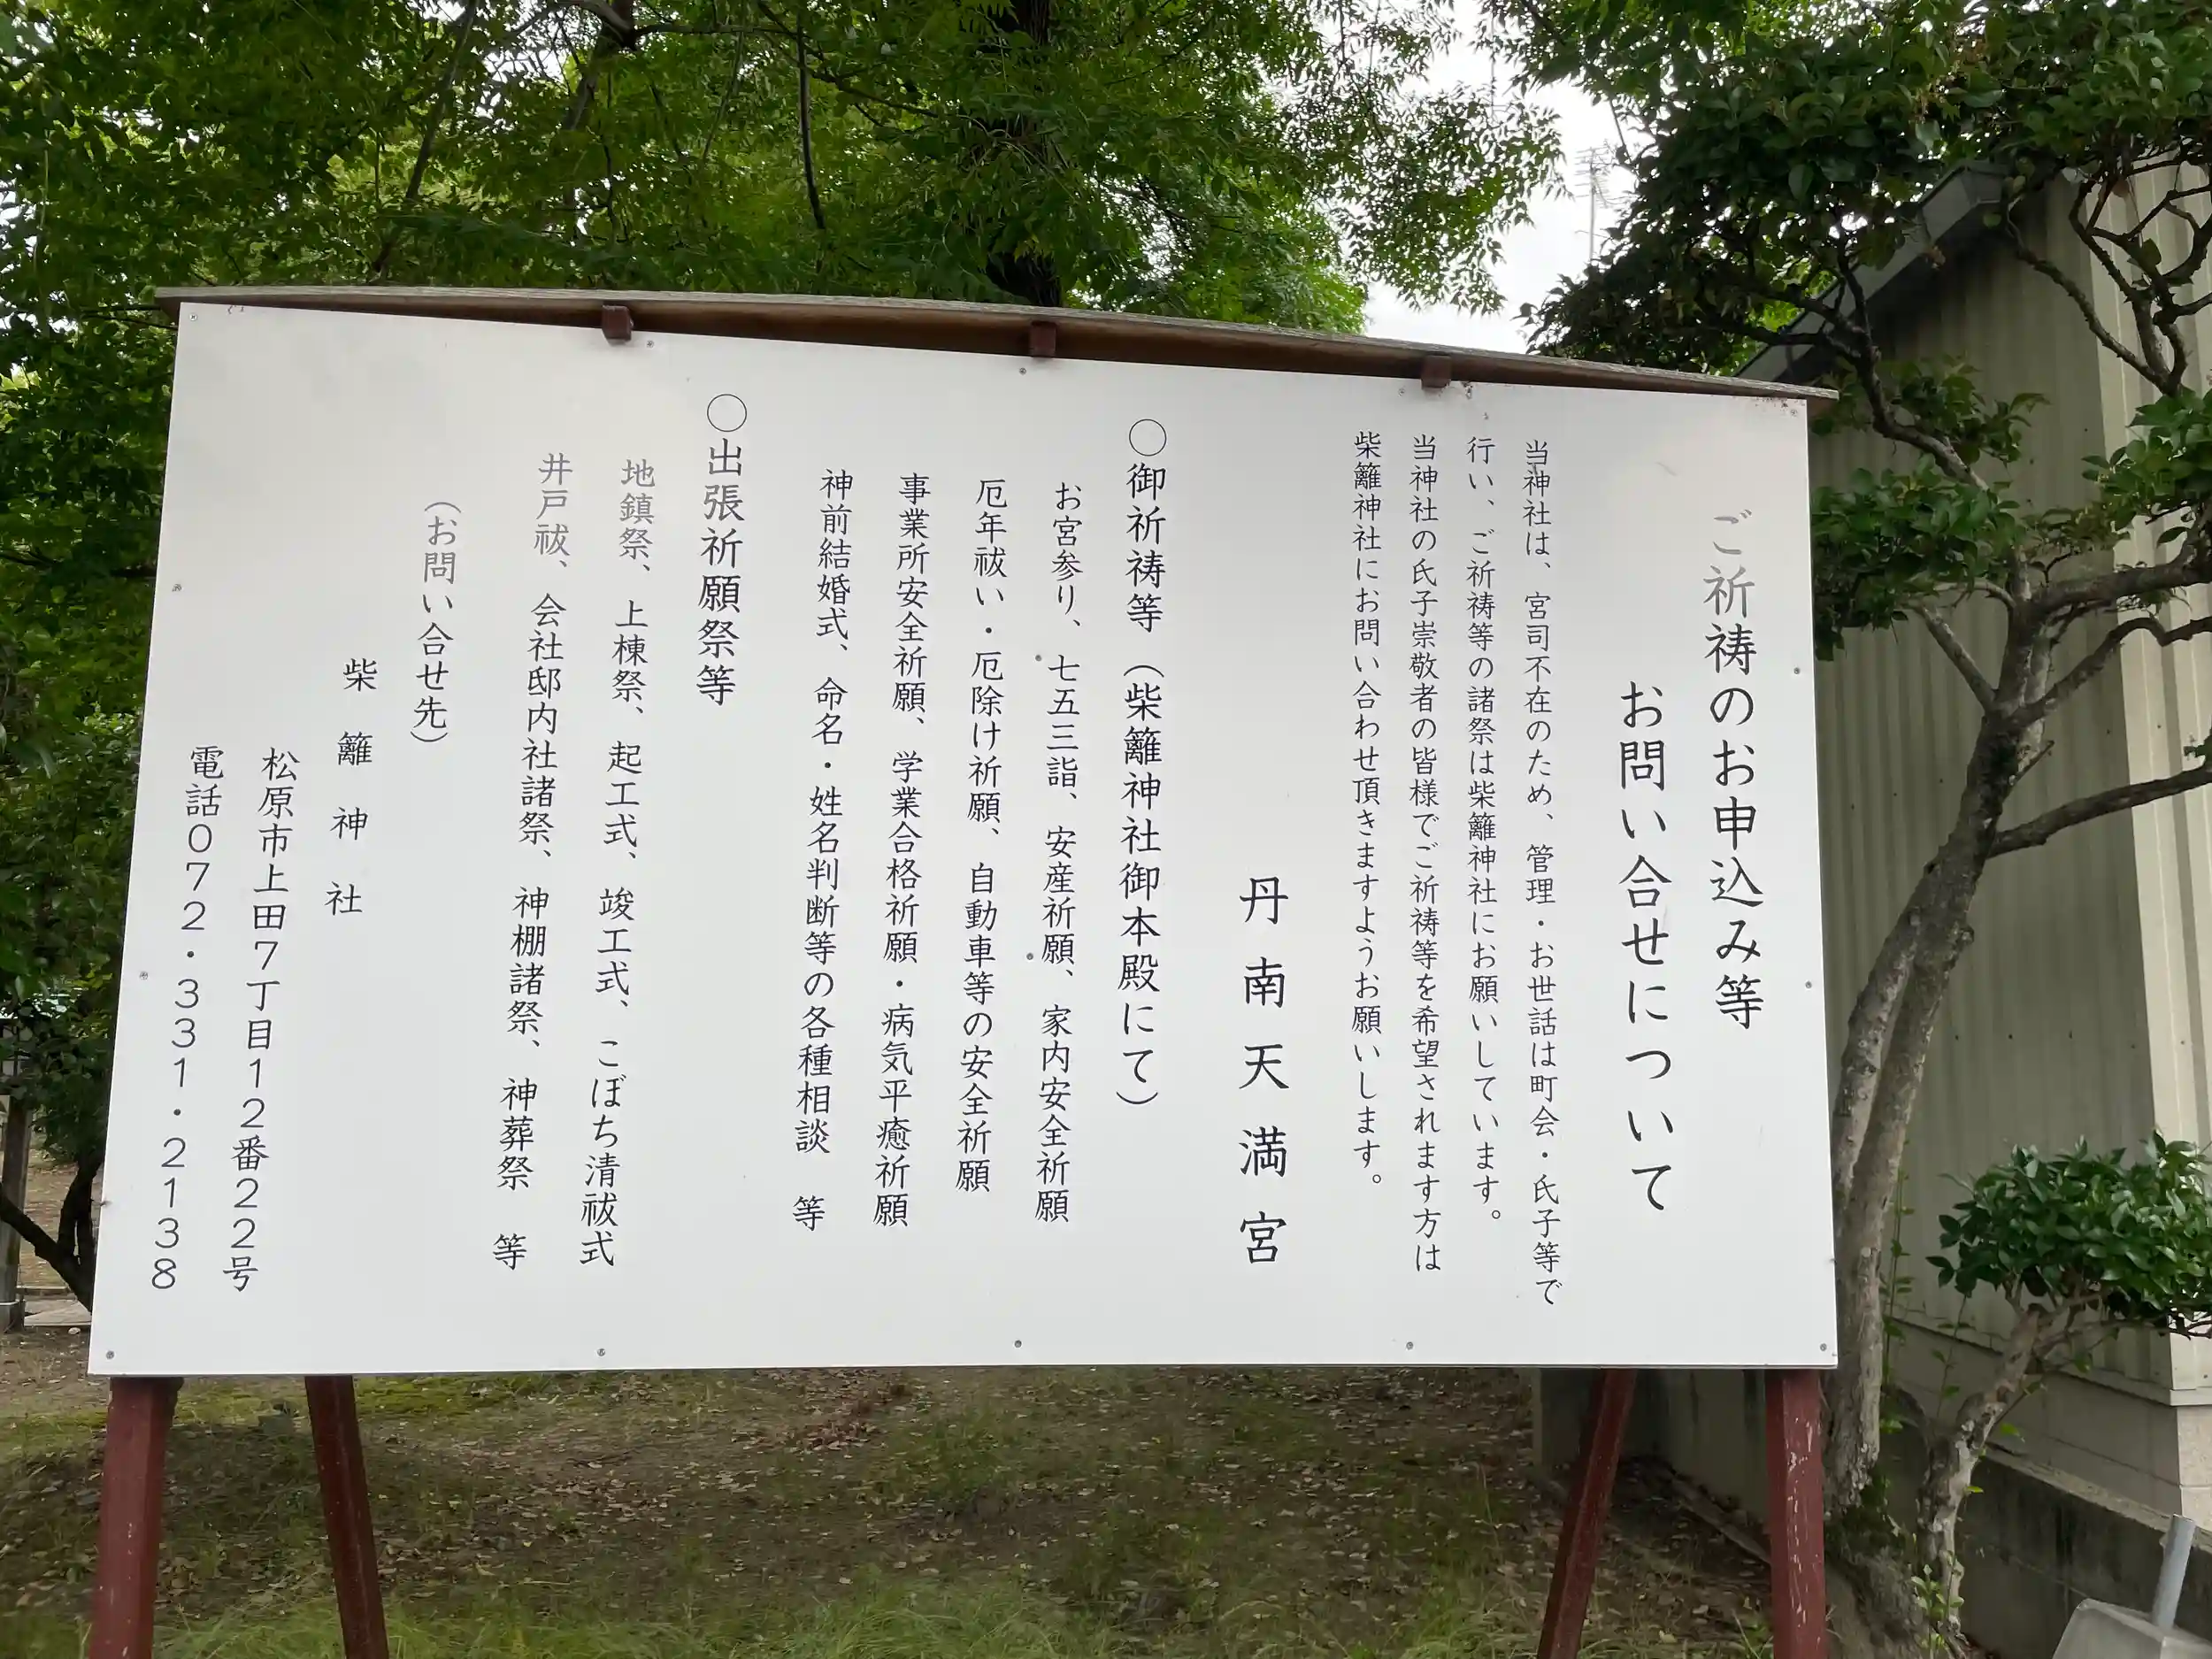 ご祈祷のお申込み等
お問い合せについて
当神社は、宮司不在のため、管理・お世話は町会・氏子等で
行い、ご祈祷等の諸祭は柴籬神社にお願いしています。
当神社の氏子崇敬者の皆様でご祈祷等を希望されます方は
柴籬神社にお問い合わせ頂きますようお願いします。
丹南天満宮
○御祈祷等（柴籬神社御本殿にて）
お宮参り、七五三詣、安産祈願、家内安全祈願
厄年祓い・厄除け祈願、自動車等の安全祈願
事業所安全祈願、学業合格祈願・病気平癒祈願
神前結婚式、命名・姓名判断等の各種相談 等
○出張祈願祭等
地鎮祭、上棟祭、起工式、竣工式、こぼち清祓式
井戸祓、会社邸内社諸祭、神棚諸祭、神葬祭 等
（お問い合せ先）
柴籬神社
松原市上田７丁目１２番２２号
電話０７２・３３１・２１３８